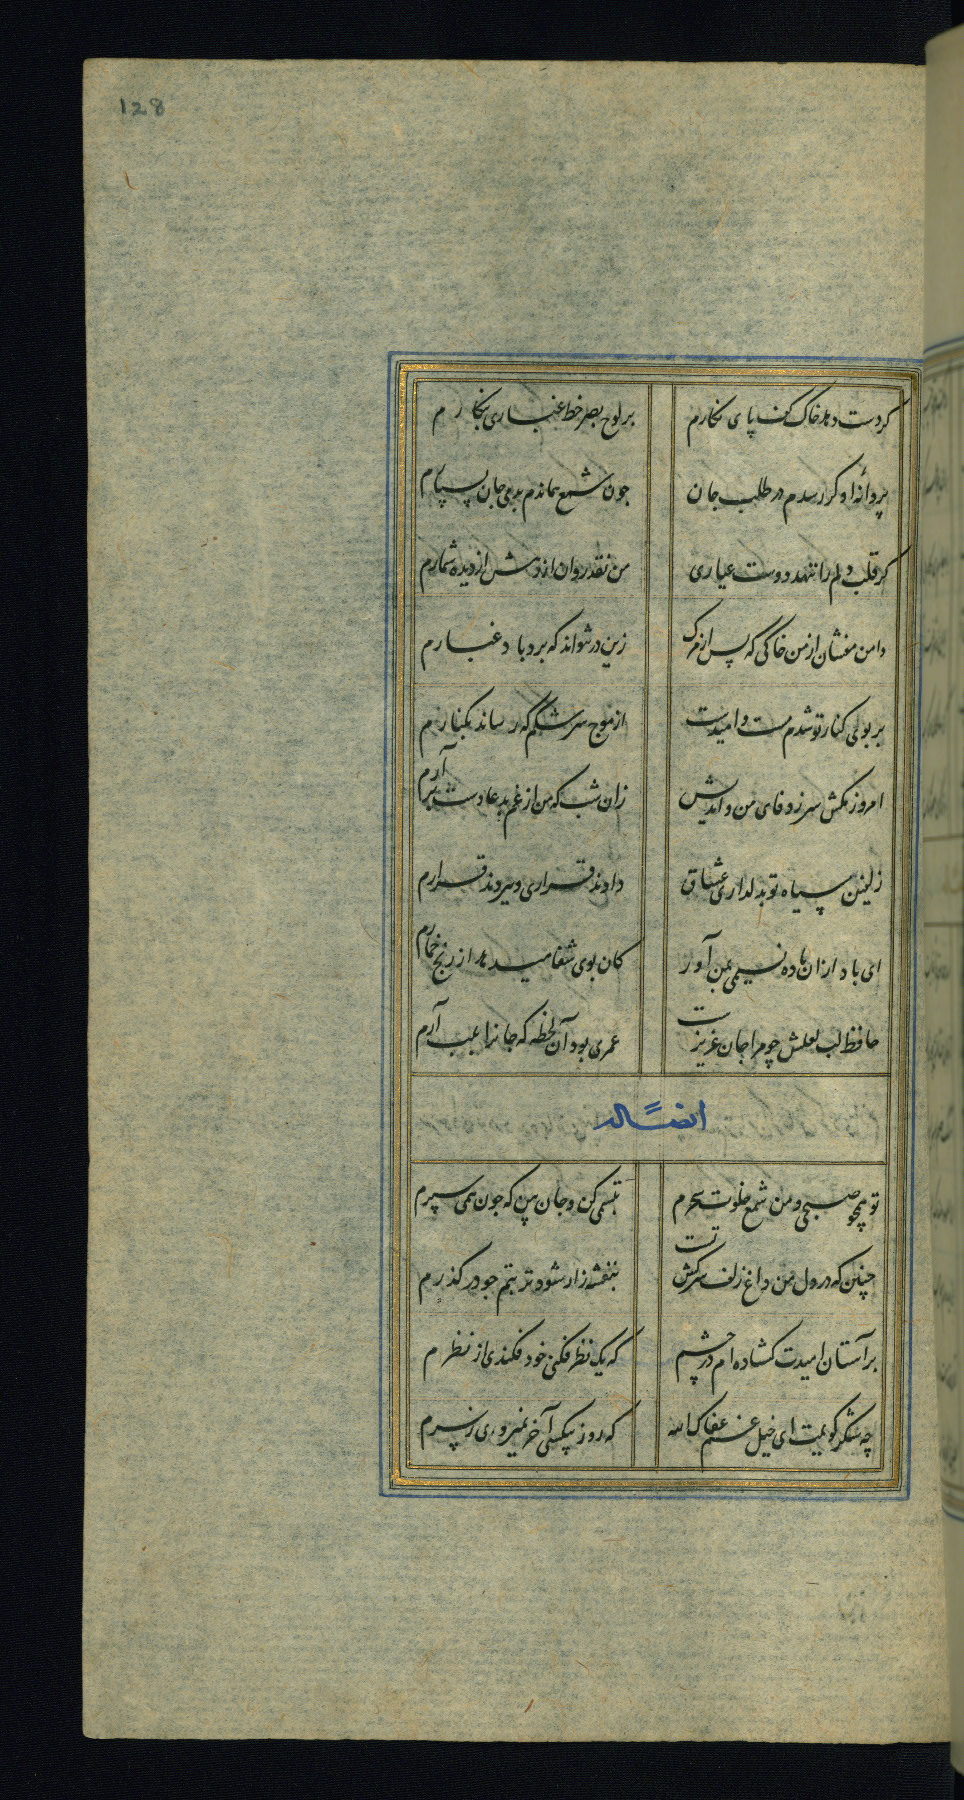 128
کر دست دهد خاک کف پای نکارم	بر لوح بصر خط غباری بنکارم
پروانهٔ او کر رسدم در طلب جان	چون شمع هماندم بدمی جان بسپارم
کر قلب دلم را ننهد دوست عیاری	من نقد روان از دمش از دیده شمارم
دامن مفشان از من خاکی که پس از مرک	زین در نتواند که برد باد غبارم
بر بوی کنار تو شدم و امیدست	از موج سرشکم که رساند بکنارم
امروز مکش سر ز وفای من و اندیش	زان شب که من از غم بدعا دست برآرم
زلفین سیاه تو بدلداری عشاق	دادند قراری و ببردند قرارم
ای باد ازان باده نسیمی بمن آور	کان بوی شفا میدهد از رنج خمارم
حافظ لب لعلش چو مرا جان عزیزست	عمری بود آن لحظه که جانرا بلب آرم
ایضًا له
تو همچو صبحی و من شمع خلوت سحرم	تبسمی کن و جان بین که چون همی سپرم
چنین که در دل من داغ زلف سرکش تست	بنفشه زار شود تربتم چو در کذرم
بر آستان امیدت کشاده ام در چشم	که یک نظر فکنی خود فکندی از نظرم
چه شکر کویمت ای خیل غم عفاک الله	که روز بیکسی آخر نمیروی ز برم